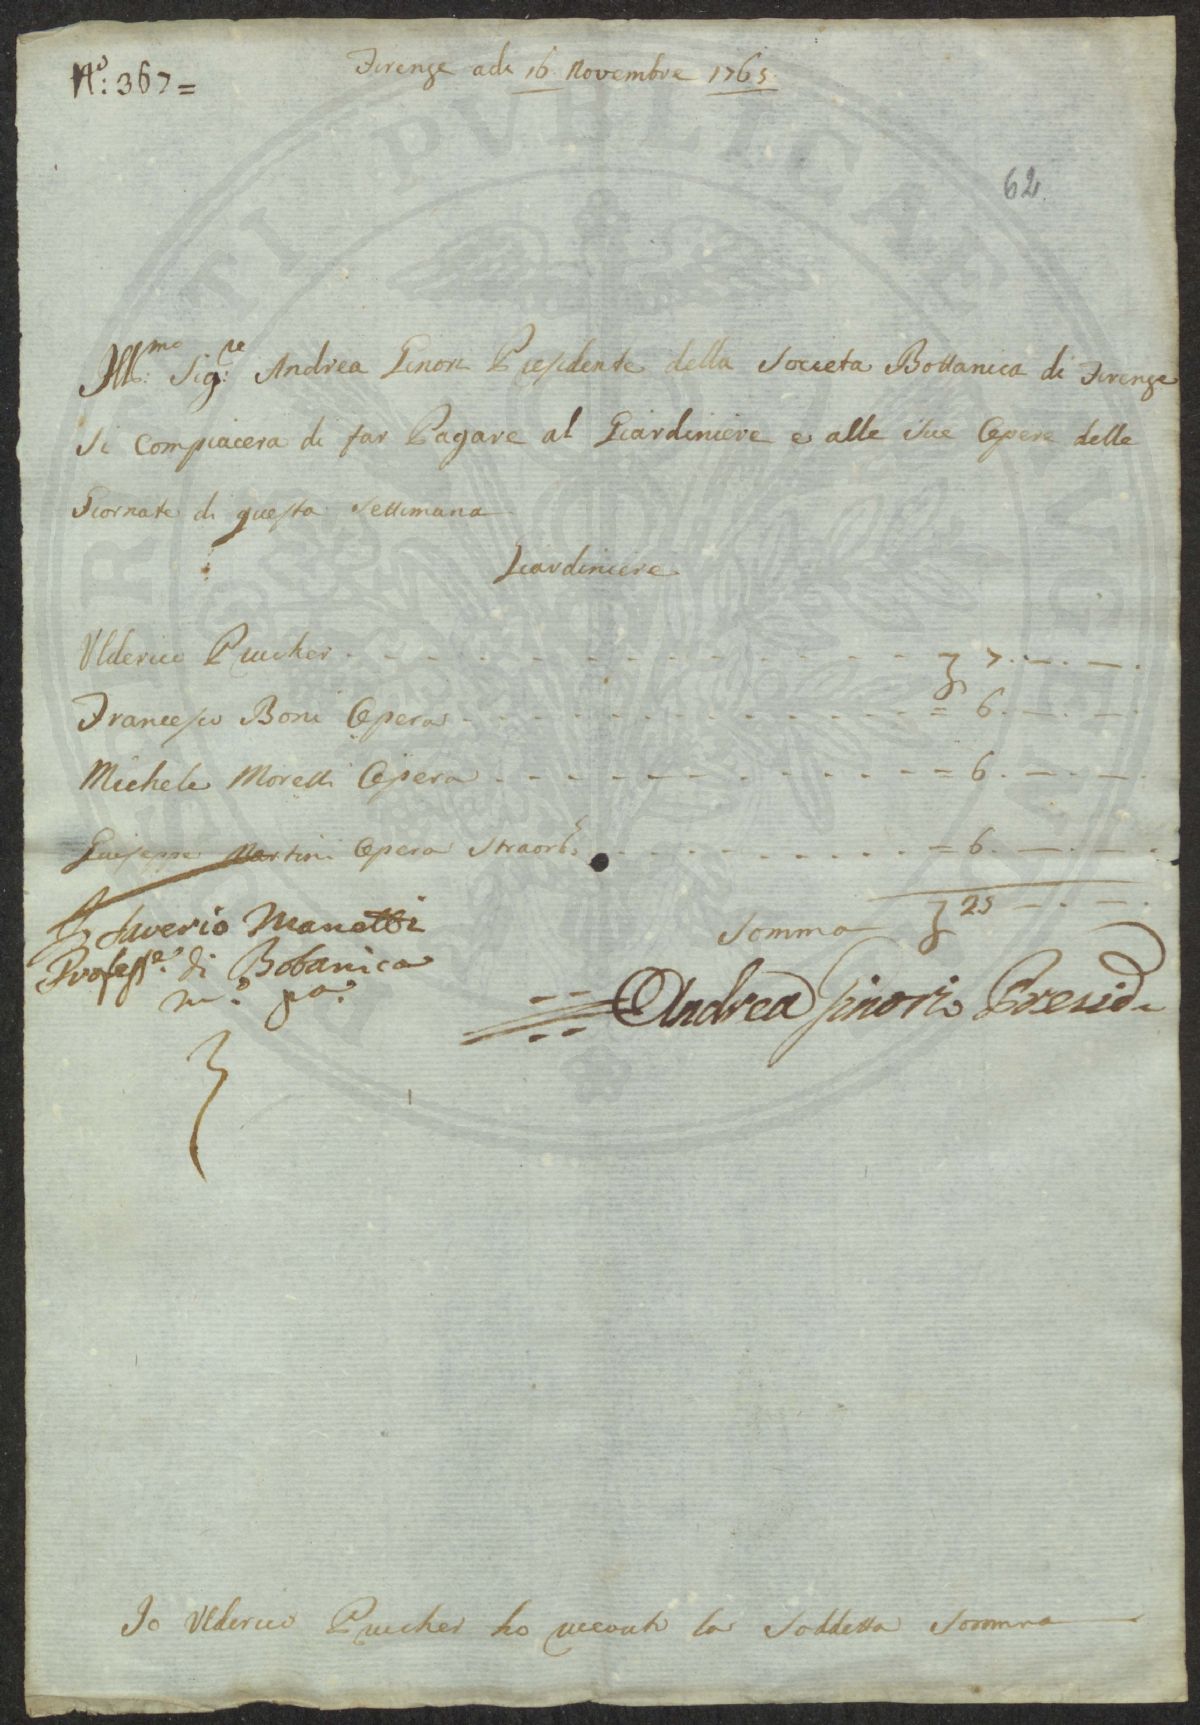 N.º: 367=
Firenze adi 16 Novembre 1765.
62.
Ill:mo Sig:re Andrea Ginori Presidente della Societa Bottanica di Firenze
Si Compiacera di far Pagare al Giardiniere e alle Sue Opere delle
Giornate di questa Settimana
Giardiniere
Ulderico Prucher - - - - 7. —. —.
Francesco Boni Opera - - - - = 6. —. —.
Michele Moretti Opera - - - - = 6. —. —.
Giuseppe Martini Opera Straord. - - - - = 6. —. —.
Somma 25 —. —.
Saverio Manetti
Profess.e di Botanica
m.o pa.
Andrea Ginori Presid.
Io Ulderico Prucher ho riceuto la Soddetta Somma